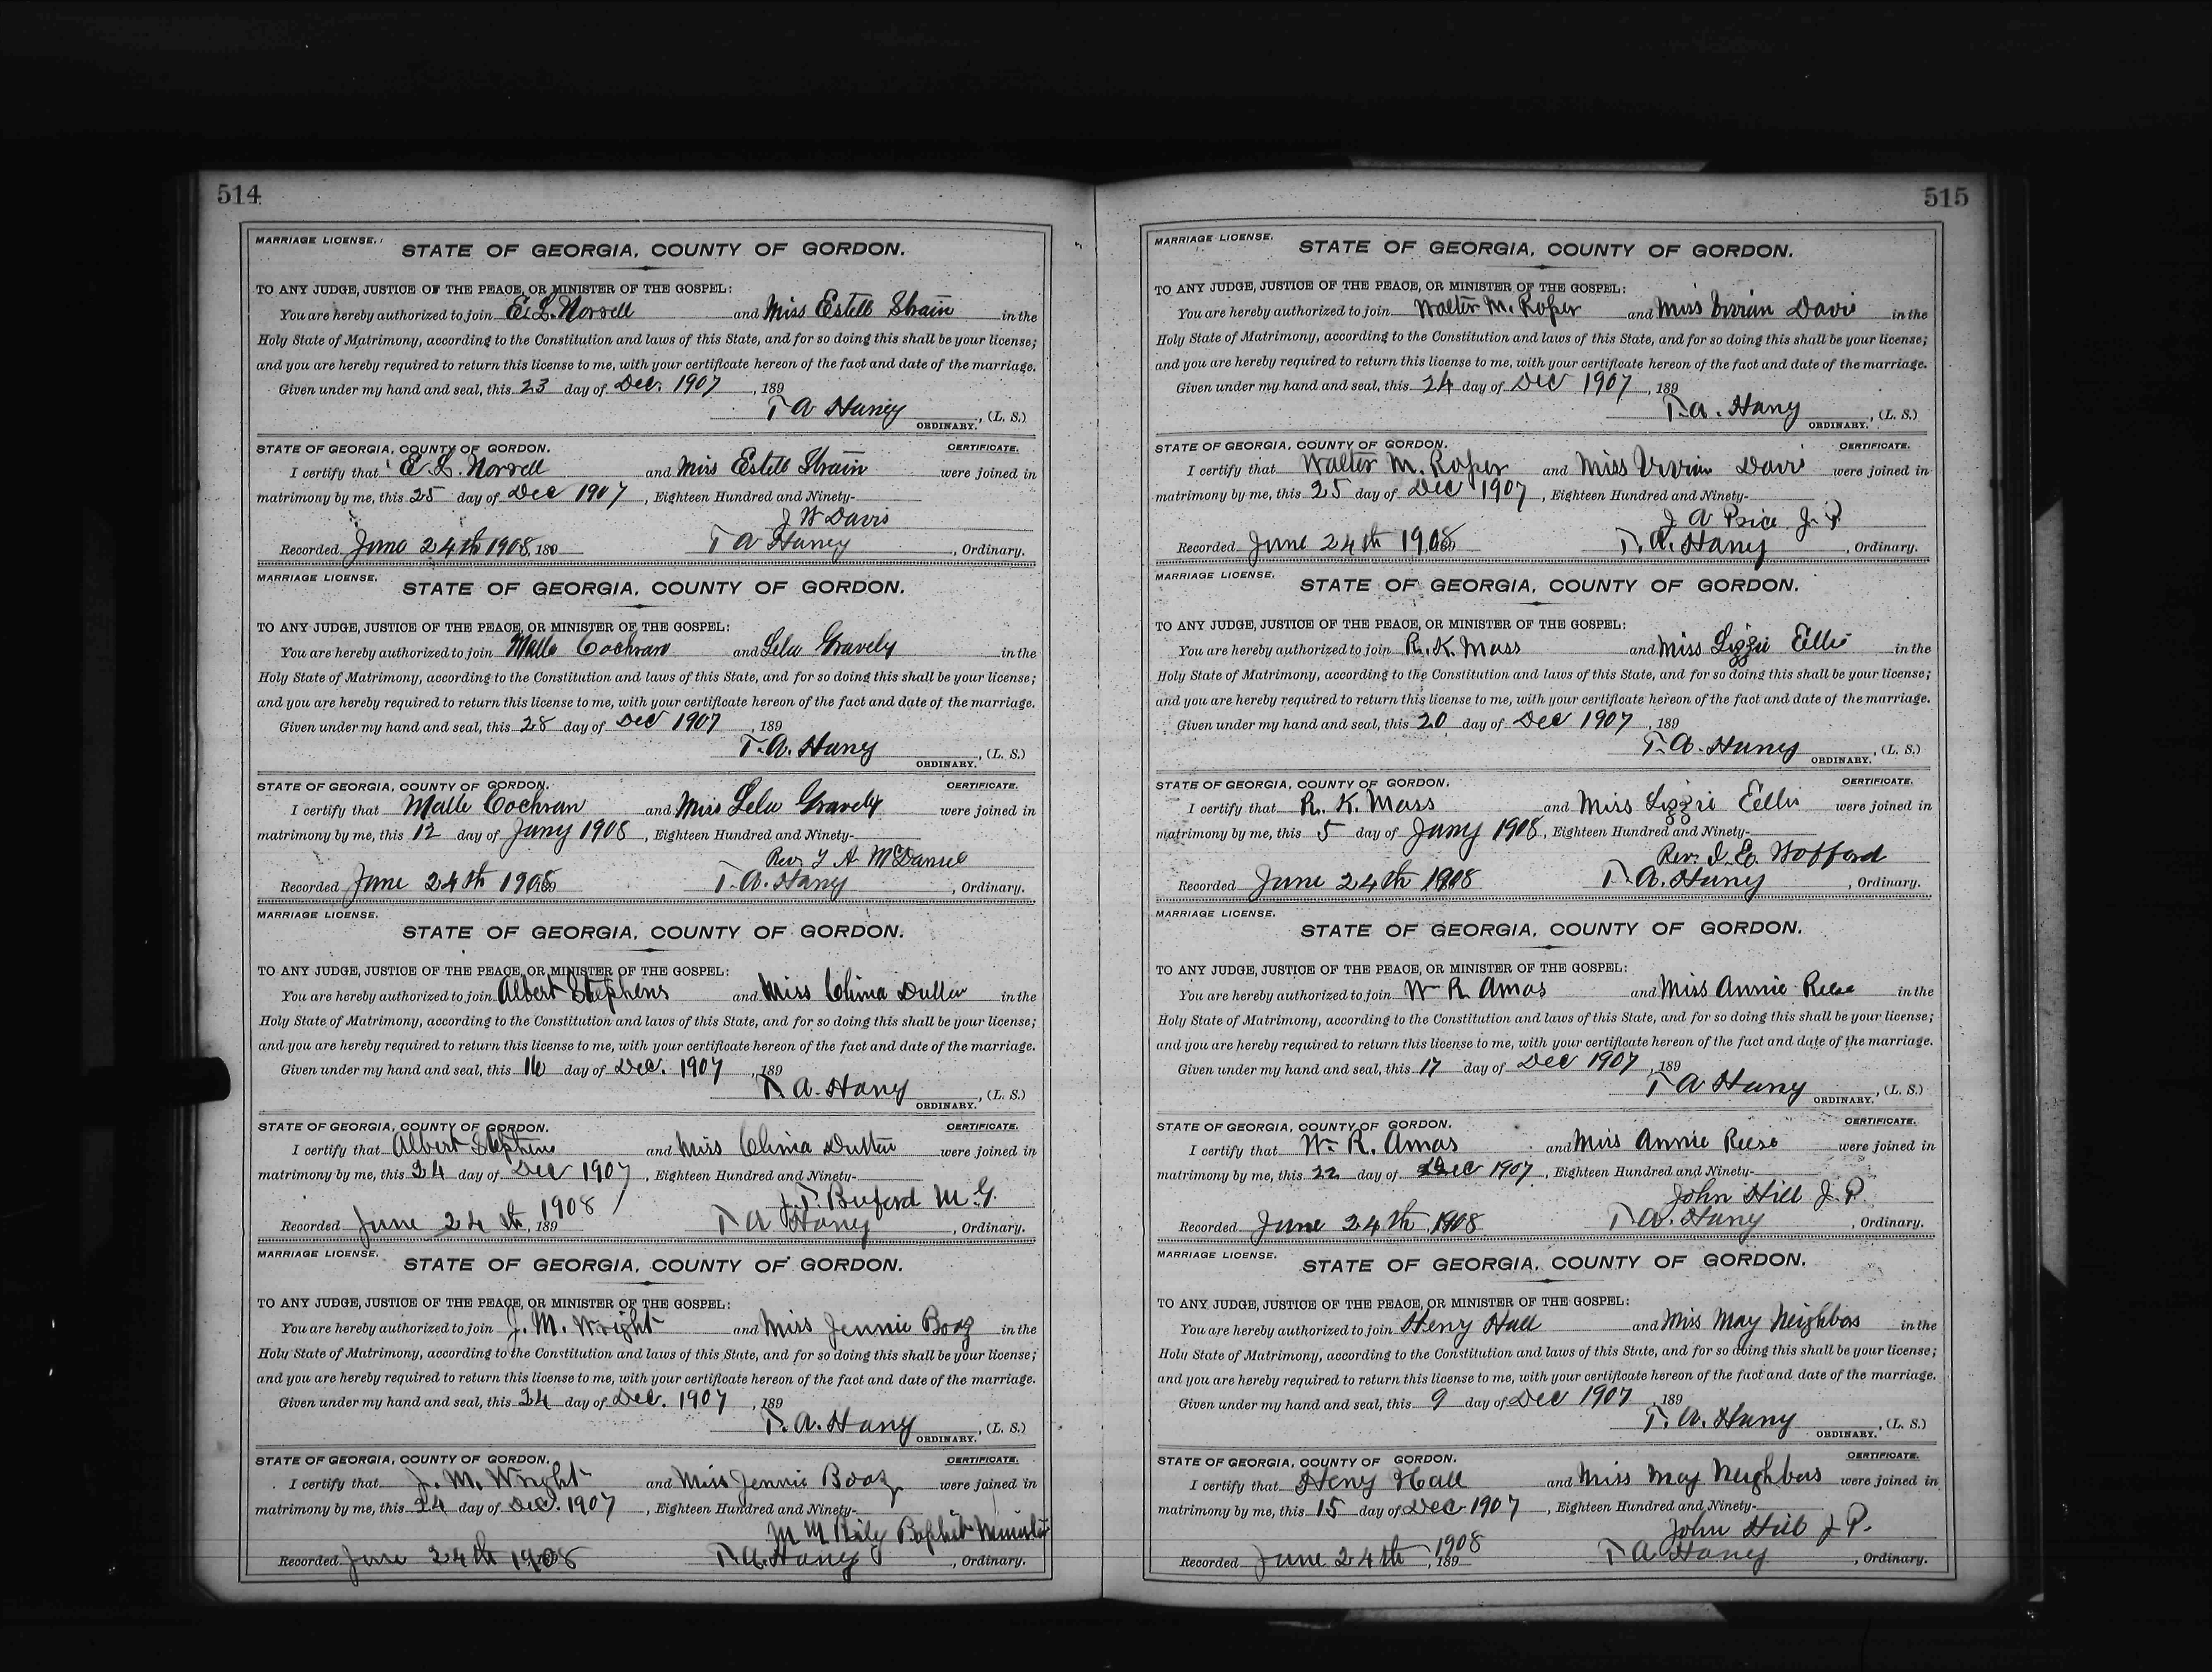 514
MARRIAGE LICENSE.
STATE OF GEORGIA, COUNTY OF GORDON.
TO ANY JUDGE, JUSTICE OF THE PEACE, OR MINISTER OF THE GOSPEL:
You are hereby authorized to join E. L. Norrell and Miss Estell Strain in the
Holy State of Matrimony, according to the Constitution and laws of this State, and for so doing this shall be your license;
and you are hereby required to return this license to me, with your certificate hereon of the fact and date of the marriage.
Given under my hand and seal, this 23 day of Dec. 1907, 189
T A Haney, (L. S.)
ORDINARY.
STATE OF GEORGIA, COUNTY OF GORDON. CERTIFICATE.
I certify that E. L. Norrell and Miss Estell Strain were joined in
matrimony by me, this 25 day of Dec 1907, Eighteen Hundred and Ninety-
J W Davis
Recorded June 24th 1908, 189 T A Haney, Ordinary.
MARRIAGE LICENSE.
STATE OF GEORGIA, COUNTY OF GORDON.
TO ANY JUDGE, JUSTICE OF THE PEACE, OR MINISTER OF THE GOSPEL:
You are hereby authorized to join Malle Cochran and Lela Gravely in the
Holy State of Matrimony, according to the Constitution and laws of this State, and for so doing this shall be your license;
and you are hereby required to return this license to me, with your certificate hereon of the fact and date of the marriage.
Given under my hand and seal, this 28 day of Dec 1907, 189
T. A. Haney, (L. S.)
ORDINARY.
STATE OF GEORGIA, COUNTY OF GORDON. CERTIFICATE.
I certify that Malle Cochran and Miss Lela Gravely were joined in
matrimony by me, this 12 day of Jany 1908, Eighteen Hundred and Ninety-
Rev. A McDaniel
Recorded June 24th 1908 T. A. Haney, Ordinary.
MARRIAGE LICENSE.
STATE OF GEORGIA, COUNTY OF GORDON.
TO ANY JUDGE, JUSTICE OF THE PEACE, OR MINISTER OF THE GOSPEL:
You are hereby authorized to join Albert Stephens and Miss Clima in the
Holy State of Matrimony, according to the Constitution and laws of this State, and for so doing this shall be your license;
and you are hereby required to return this license to me, with your certificate hereon of the fact and date of the marriage.
Given under my hand and seal, this 16 day of Dec. 1907, 189
T. A. Haney, (L. S.)
ORDINARY.
STATE OF GEORGIA, COUNTY OF GORDON. CERTIFICATE.
I certify that Albert Stephens and Miss Clima were joined in
matrimony by me, this 24 day of Dec 1907, Eighteen Hundred and Ninety-
J. T. Buford M. G.
Recorded June 24th, 189 1908 T A Haney, Ordinary.
MARRIAGE LICENSE.
STATE OF GEORGIA, COUNTY OF GORDON.
TO ANY JUDGE, JUSTICE OF THE PEACE, OR MINISTER OF THE GOSPEL:
You are hereby authorized to join J. M. Wright and Miss Jennie Boaz in the
Holy State of Matrimony, according to the Constitution and laws of this State, and for so doing this shall be your license;
and you are hereby required to return this license to me, with your certificate hereon of the fact and date of the marriage.
Given under my hand and seal, this 24 day of Dec. 1907, 189
T. A. Haney, (L. S.)
ORDINARY.
STATE OF GEORGIA, COUNTY OF GORDON. CERTIFICATE.
I certify that J. M. Wright and Miss Jennie Boaz were joined in
matrimony by me, this 24 day of Dec. 1907, Eighteen Hundred and Ninety-
M M Baptist Minister
Recorded June 24th 1908 T. A. Haney, Ordinary.
515
MARRIAGE LICENSE.
STATE OF GEORGIA, COUNTY OF GORDON.
TO ANY JUDGE, JUSTICE OF THE PEACE, OR MINISTER OF THE GOSPEL:
You are hereby authorized to join Walter M. Roper and Miss Vivian Davis in the
Holy State of Matrimony, according to the Constitution and laws of this State, and for so doing this shall be your license;
and you are hereby required to return this license to me, with your certificate hereon of the fact and date of the marriage.
Given under my hand and seal, this 24 day of Dec 1907, 189
T. A. Haney, (L. S.)
ORDINARY.
STATE OF GEORGIA, COUNTY OF GORDON. CERTIFICATE.
I certify that Walter M. Roper and Miss Vivian Davis were joined in
matrimony by me, this 25 day of Dec 1907, Eighteen Hundred and Ninety-
J A Price J. P
Recorded June 24th 1908 T. A. Haney, Ordinary.
MARRIAGE LICENSE.
STATE OF GEORGIA, COUNTY OF GORDON.
TO ANY JUDGE, JUSTICE OF THE PEACE, OR MINISTER OF THE GOSPEL:
You are hereby authorized to join R. K. Mass and Miss Lizzie Ellis in the
Holy State of Matrimony, according to the Constitution and laws of this State, and for so doing this shall be your license;
and you are hereby required to return this license to me, with your certificate hereon of the fact and date of the marriage.
Given under my hand and seal, this 20 day of Dec 1907, 189
T. A. Haney, (L. S.)
ORDINARY.
STATE OF GEORGIA, COUNTY OF GORDON. CERTIFICATE.
I certify that R. K. Mass and Miss Lizzie Ellis were joined in
matrimony by me, this 5 day of Jany 1908, Eighteen Hundred and Ninety-
Rev. Wofford
Recorded June 24th 1908 T. A. Haney, Ordinary.
MARRIAGE LICENSE.
STATE OF GEORGIA, COUNTY OF GORDON.
TO ANY JUDGE, JUSTICE OF THE PEACE, OR MINISTER OF THE GOSPEL:
You are hereby authorized to join W R Amos and Miss Annie Reese in the
Holy State of Matrimony, according to the Constitution and laws of this State, and for so doing this shall be your license;
and you are hereby required to return this license to me, with your certificate hereon of the fact and date of the marriage.
Given under my hand and seal, this 17 day of Dec 1907, 189
T A Haney, (L. S.)
ORDINARY.
STATE OF GEORGIA, COUNTY OF GORDON. CERTIFICATE.
I certify that W. R. Amos and Miss Annie Reese were joined in
matrimony by me, this 22 day of Dec 1907, Eighteen Hundred and Ninety-
John Hill J. P.
Recorded June 24th 1908 T A. Haney, Ordinary.
MARRIAGE LICENSE.
STATE OF GEORGIA, COUNTY OF GORDON.
TO ANY JUDGE, JUSTICE OF THE PEACE, OR MINISTER OF THE GOSPEL:
You are hereby authorized to join Henry Hall and Miss May Neighbors in the
Holy State of Matrimony, according to the Constitution and laws of this State, and for so doing this shall be your license;
and you are hereby required to return this license to me, with your certificate hereon of the fact and date of the marriage.
Given under my hand and seal, this 9 day of Dec 1907, 189
T. A. Haney, (L. S.)
ORDINARY.
STATE OF GEORGIA, COUNTY OF GORDON. CERTIFICATE.
I certify that Henry Hall and Miss May Neighbors were joined in
matrimony by me, this 15 day of Dec 1907, Eighteen Hundred and Ninety-
John Hill J P.
Recorded June 24th, 189 1908 T A Haney, Ordinary.